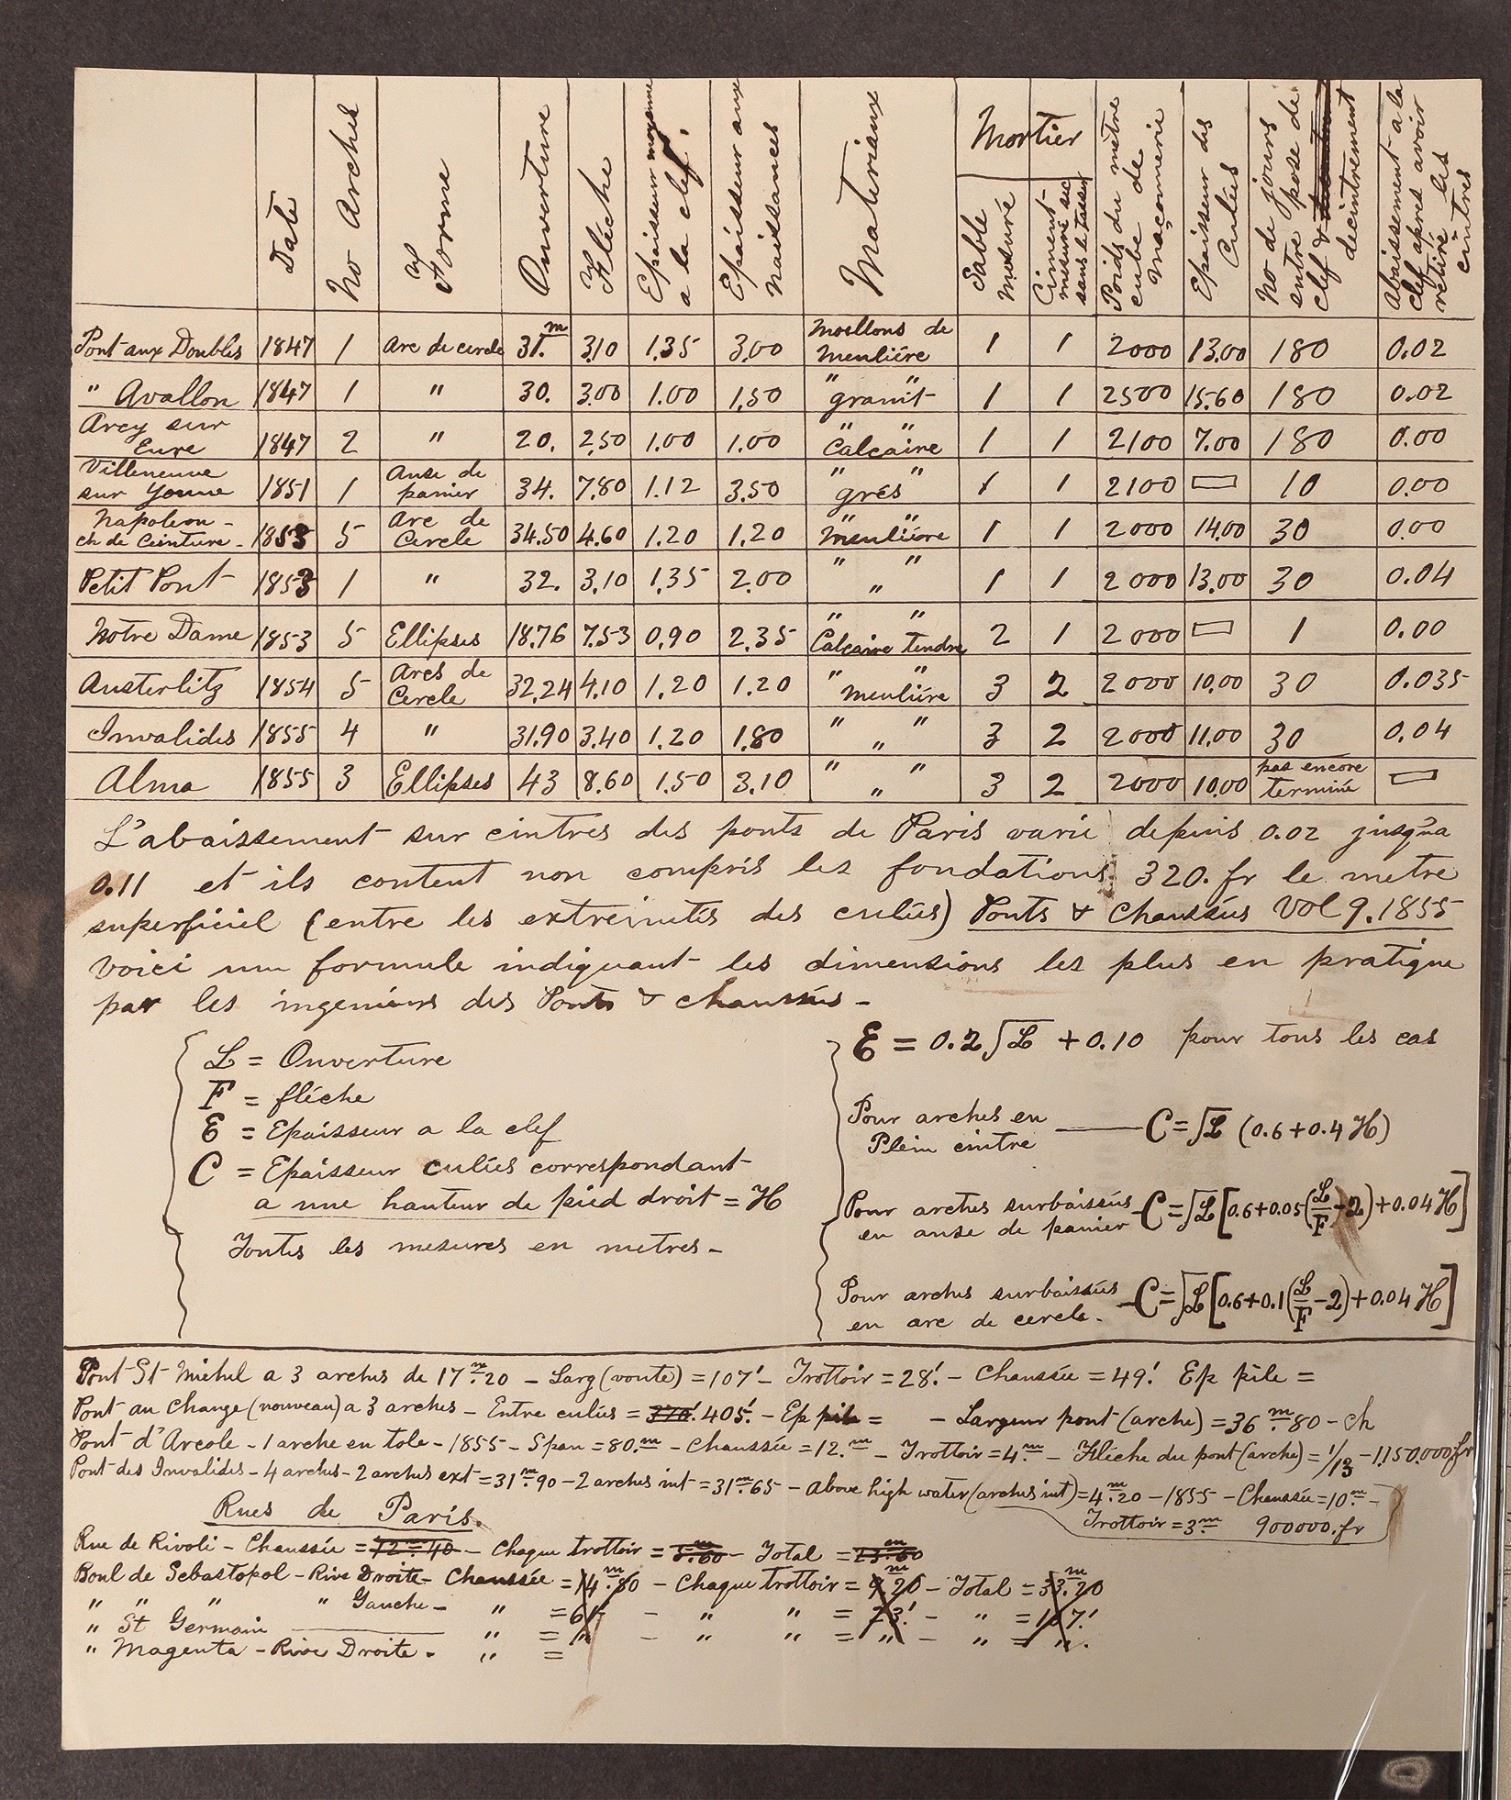 Date | No Arches | Forme | Ouverture | Flèche | Epaisseur moyenne a la clef. | Epaisseur aux naissances | Materiaux | Mortier: Sable mesuré | Mortier: Ciment mesuré sec sans le tasser | Poids du mètre cube de maçonnerie | Epaisseur des Culées | No de jours entre pose de clef & decintrement | Abaissement a la clef après avoir retiré les cintres
Pont aux Doubles | 1847 | 1 | Arc de cercle | 31.m | 3.10 | 1.35 | 3.00 | Moellons de meulière | 1 | 1 | 2000 | 13.00 | 180 | 0.02
" Avallon | 1847 | 1 | " | 30. | 3.00 | 1.00 | 1.50 | " " granit | 1 | 1 | 2500 | 15.60 | 180 | 0.02
Arcy sur Eure | 1847 | 2 | " | 20. | 2.50 | 1.00 | 1.00 | " " Calcaire | 1 | 1 | 2100 | 7.00 | 180 | 0.00
Villeneuve sur Yonne | 1851 | 1 | Anse de panier | 34. | 7.80 | 1.12 | 3.50 | " " grés | 1 | 1 | 2100 | | 10 | 0.00
Napoleon - ch de Ceinture - | 1853 | 5 | Arc de Cercle | 34.50 | 4.60 | 1.20 | 1.20 | " " meulière | 1 | 1 | 2000 | 14.00 | 30 | 0.00
Petit Pont | 1853 | 1 | " | 32. | 3.10 | 1.35 | 2.00 | " " " | 1 | 1 | 2000 | 13.00 | 30 | 0.04
Notre Dame | 1853 | 5 | Ellipses | 18.76 | 7.53 | 0.90 | 2.35 | " " Calcaire tendre | 2 | 1 | 2000 | | 1 | 0.00
Austerlitz | 1854 | 5 | Arcs de Cercle | 32.24 | 4.10 | 1.20 | 1.20 | " " meulière | 3 | 2 | 2000 | 10.00 | 30 | 0.035
Invalides | 1855 | 4 | " | 31.90 | 3.40 | 1.20 | 1.80 | " " " | 3 | 2 | 2000 | 11.00 | 30 | 0.04
Alma | 1855 | 3 | Ellipses | 43 | 8.60 | 1.50 | 3.10 | " " " | 3 | 2 | 2000 | 10.00 | pas encore terminé |
L'abaissement sur cintres des ponts de Paris varie depuis 0.02 jusqu'a
0.11 et ils coutent non compris les fondations 320. fr le metre
superficiel (entre les extremités des culées) Ponts & Chaussées Vol 9. 1855
Voici une formule indiquant les dimensions les plus en pratique
par les ingenieurs des Ponts & chaussées -
L = Ouverture
F = flèche
E = Epaisseur a la clef
C = Epaisseur culées correspondant
a une hauteur de pied droit = H
Toutes les mesures en metres -
E = 0.2 √L + 0.10 pour tous les cas
Pour arches en Plein cintre — C = √L (0.6 + 0.4 H)
Pour arches surbaissées en anse de panier - C = √L [0.6 + 0.05 (L/F - 2) + 0.04 H]
Pour arches surbaissées en arc de cercle. - C = √L [0.6 + 0.1 (L/F - 2) + 0.04 H]
Pont St Michel a 3 arches de 17m.20 - Larg (voute) = 107' - Trottoir = 28' - Chaussée = 49' Ep pile =
Pont au Change (nouveau) a 3 arches - Entre culées = 320' 405' - Ep pile = - Largeur pont (arche) = 36m.80 - Ch
Pont d'Arcole - 1 arche en tole - 1855 - Span = 80.m - Chaussée = 12.m - Trottoir = 4.m - Flèche du pont (arche) = 1/13 - 1,150,000 fr
Pont des Invalides - 4 arches - 2 arches ext = 31m.90 - 2 arches int = 31m.65 - above high water (arches int) = 4m.20 - 1855 - Chaussée = 10m. -
Trottoir = 3m. 900000. fr
Rues de Paris.
Rue de Rivoli - Chaussée = 12m.40 - Chaque trottoir = 5m.60 - Total = 23m.60
Boul de Sebastopol - Rive Droite - Chaussée = 14m.80 - Chaque trottoir = 9m.20 - Total = 33m.20
" " " " Gauche - " = 61' - " " = 23' - " = 107'
" St Germain — " = " - " " = " - " = ".
" Magenta - Rive Droite. " =